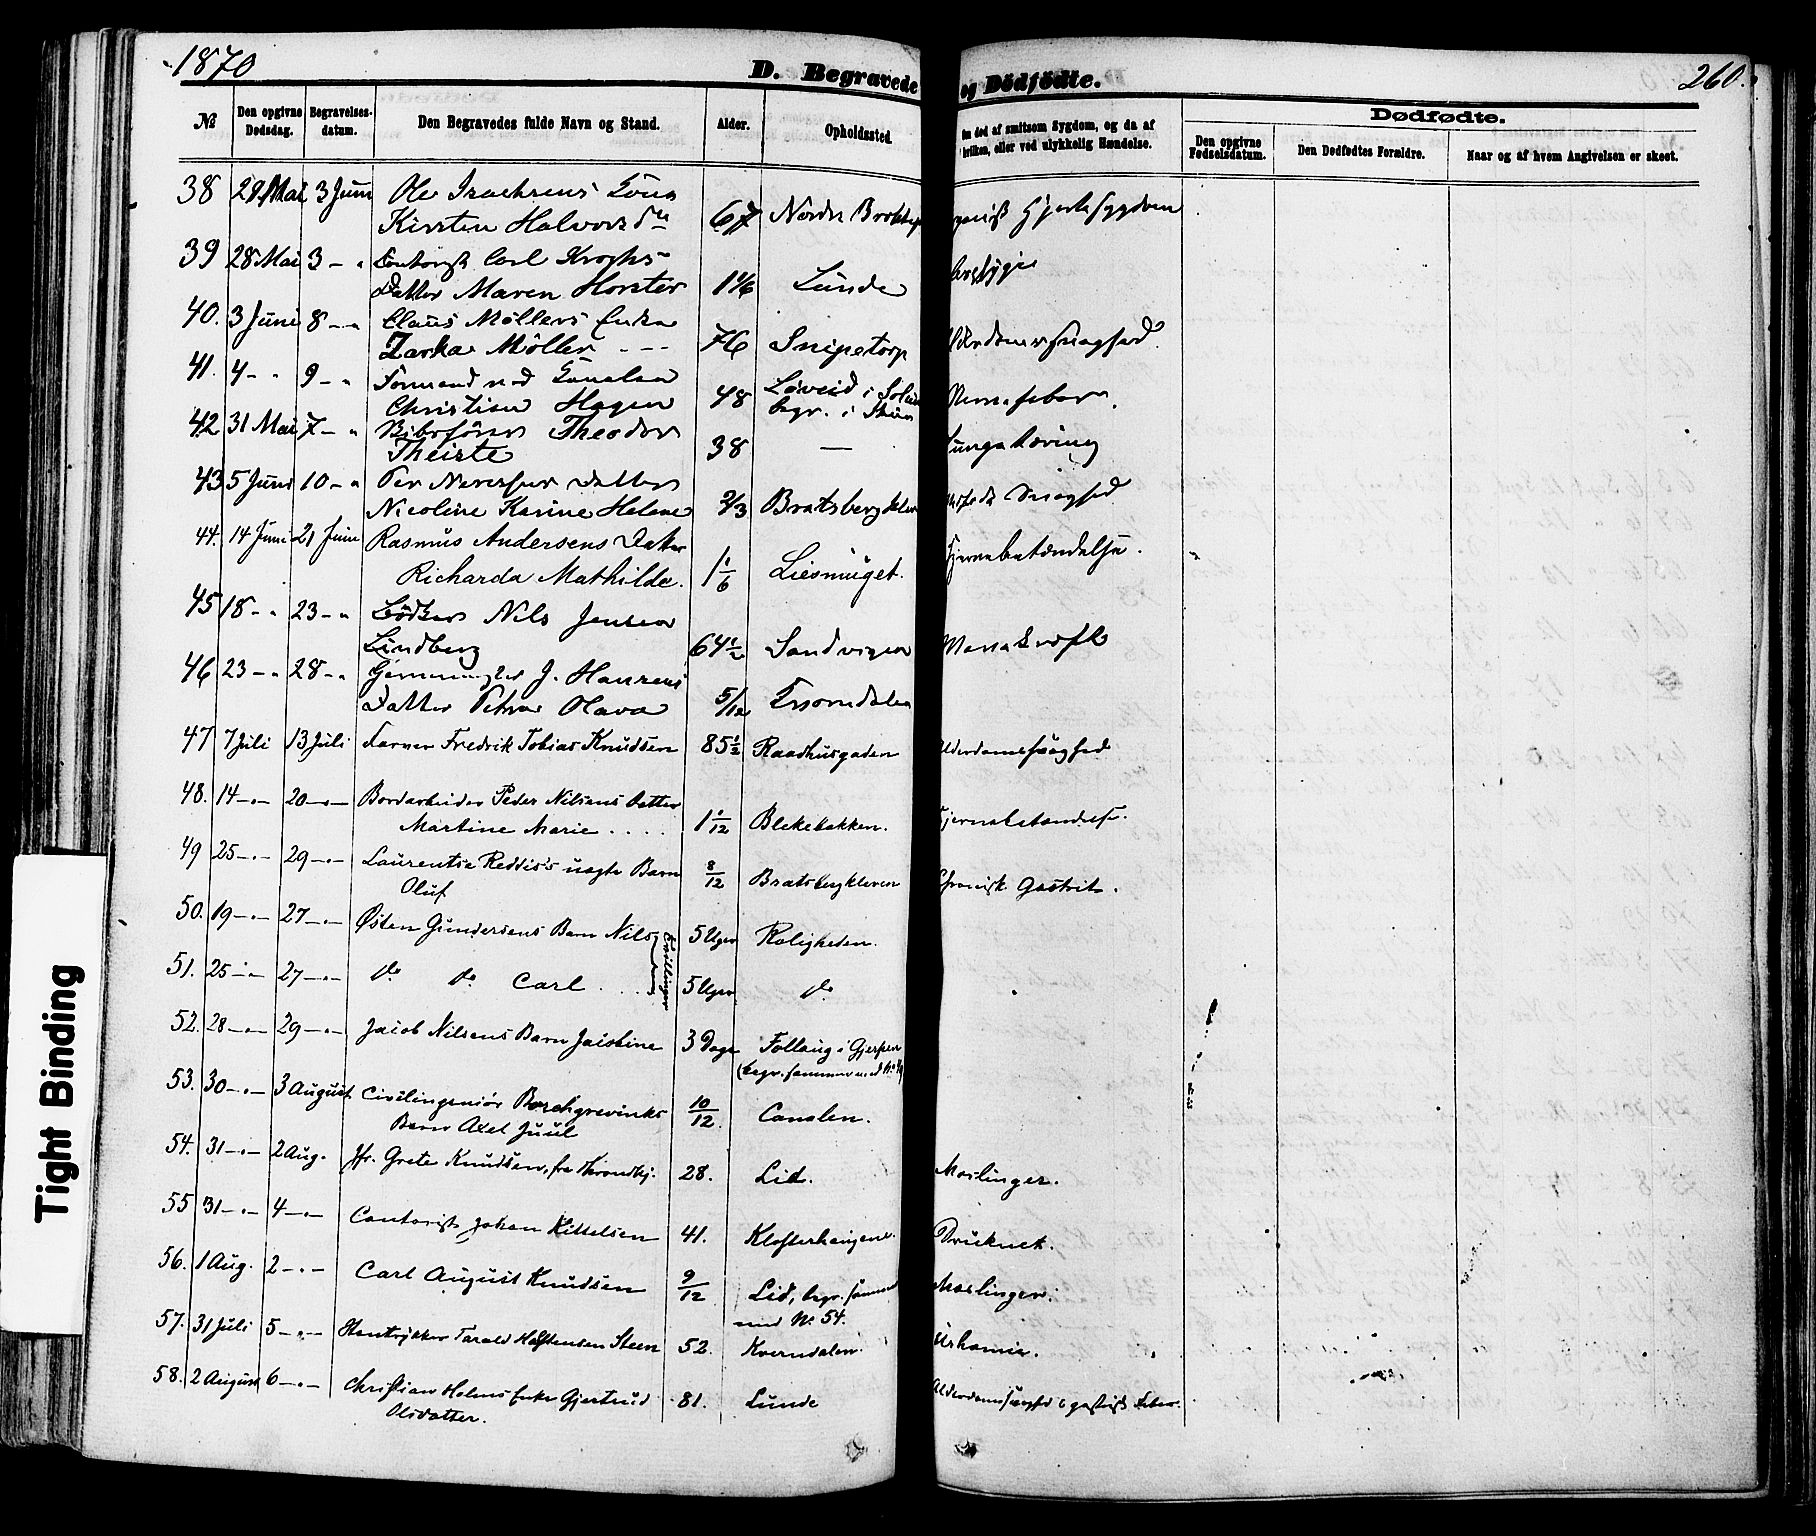 1870
D. Begravede og Dödfödte.
260.
№ Den opgivne Dødsdag. Begravelses-datum. Den Begravedes fulde Navn og Stand. Alder. Opholdssted. død af smitsom Sygdom, og da af hvilken, eller ved ulykkelig Hændelse.
Dødfødte.
Den opgivne Fødselsdatum. Den Dødfødtes Forældre. Naar og af hvem Angivelsen er skeet.
38 29 Mai 3 Juni Ole
Kirsten Halvorsd 67 Nordr
39 28 Mai 3 - " Contorist Carl Kroghs
Datter Maren Horster 1 1/6 Lunde
40. 3 Juni 8 - " Claus Møllers Enke
Møller - - - 76 Snipetorp Alderdomssvaghed.
41. 4 - " 9 - " Formand ved
Christian Hagen 48 Løveid i
begr. i Skien
42 31 Mai 7 - " Theodor
Theiste 38 —
43 5 Juni 10 - " Per Datter
Nicoline Karine Helene 2/3 Bratsbergkleven
44. 14 Juni 21 Juni Rasmus Andersens Datter
Richarda Mathilde. 1 1/6 Liesmüget. Hjernebetændelse.
45 18 - " 23 - " Bödker Nils Jensen
Lindberg 64 1/2 Sandvigen
46 23 - " 28 - " J. Hansens
Datter Petra Olava 5/12
47 7 Juli 13 Juli Farver Fredrik Tobias Knudsen 85 1/2 Raadhusgaden Alderdomssvaghed
48. 14 - " - 20 - " - Bordarbeider Peder Nilsens Datter
Martine Marie . . . . 1 1/12 Blekebakken. Hjernebetændelse.
49 25 - " - 29 - " - Laurentse Reddis's uægte Barn
Oluf 8/12 Bratsbergkleven Chronisk Gastrit.
50. 19 - " - 27 - " - Østen Gundersens Barn Nils 5 Uger Roligheden.
Tvillinger
51. 25 - " - 27 - " - do do Carl . . . 5 Uger do
52. 28 - " - 29 - " - Jacob Nilsens Barn Jacobine 3 Dage Follaug i Gjerpen
(begr. sammen med No
53. 30 - " - 3 August Civilingeniör Borchgrevinks
Barn Axel Juul 10/12 Canalen.
54. 31 - " - 2 Aug. Jfr. Grete Knudsen, fra Throndhj. 28. Lid. Mæslinger.
55 31 - " - 4 - " - Contorist Johan Kittelsen 41. Klosterhaugene. Druknet.
56. 1 Aug. 2 - " - Carl August Knudsen 9/12 Lid, begr. sammen
med No 54. Mæslinger.
57. 31 Juli 5 - " - Tarald Steen 52. Kverndalen.
58. 2 August 6 - " - Christian Holms Enke Gjertrud
Olsdatter. 81. Lunde Alderdomssvaghed & gastrisk Feber.
Tight Binding